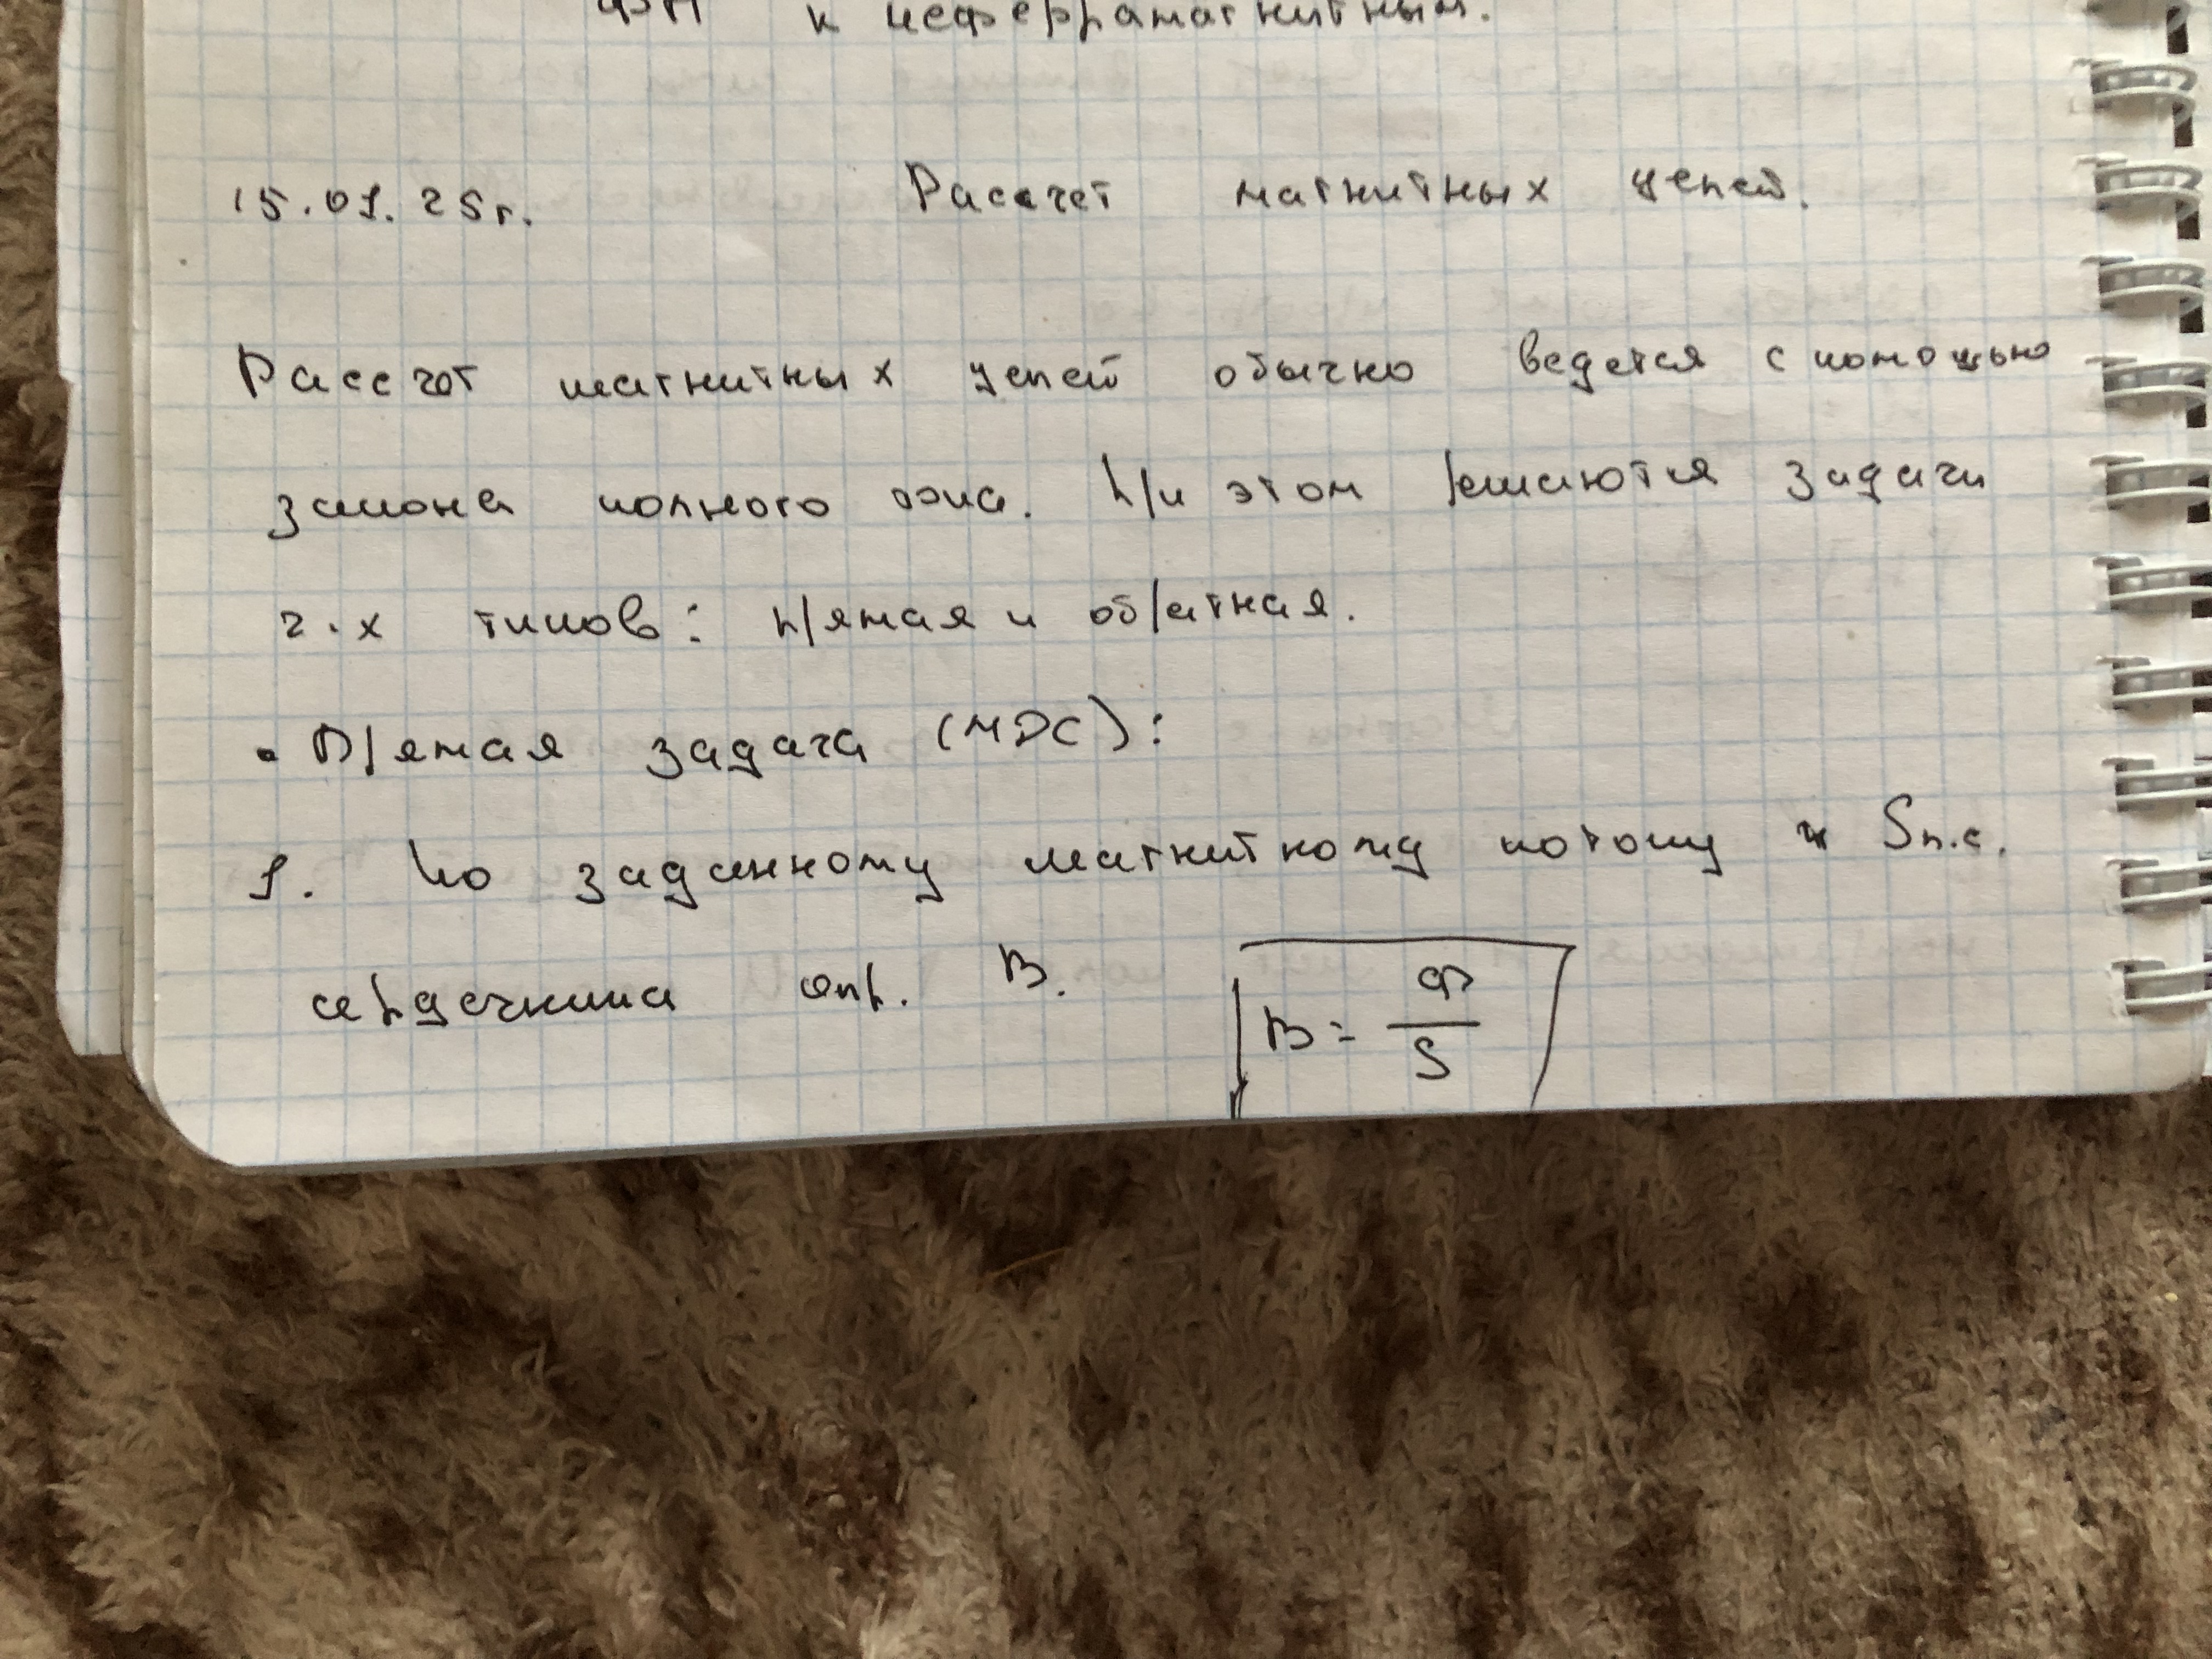 к неферрамагнитным.
15.01.25г. Рассчет магнитных цепей.
Рассчет магнитных цепей обычно ведется с помощью
закона полного тока. При этом решаются задачи
2-х типов: прямая и обратная.
• Прямая задача (МДС):
1. По заданному магнитному потоку и Sп.с.
сердечника опр. B.
B = Ф
S